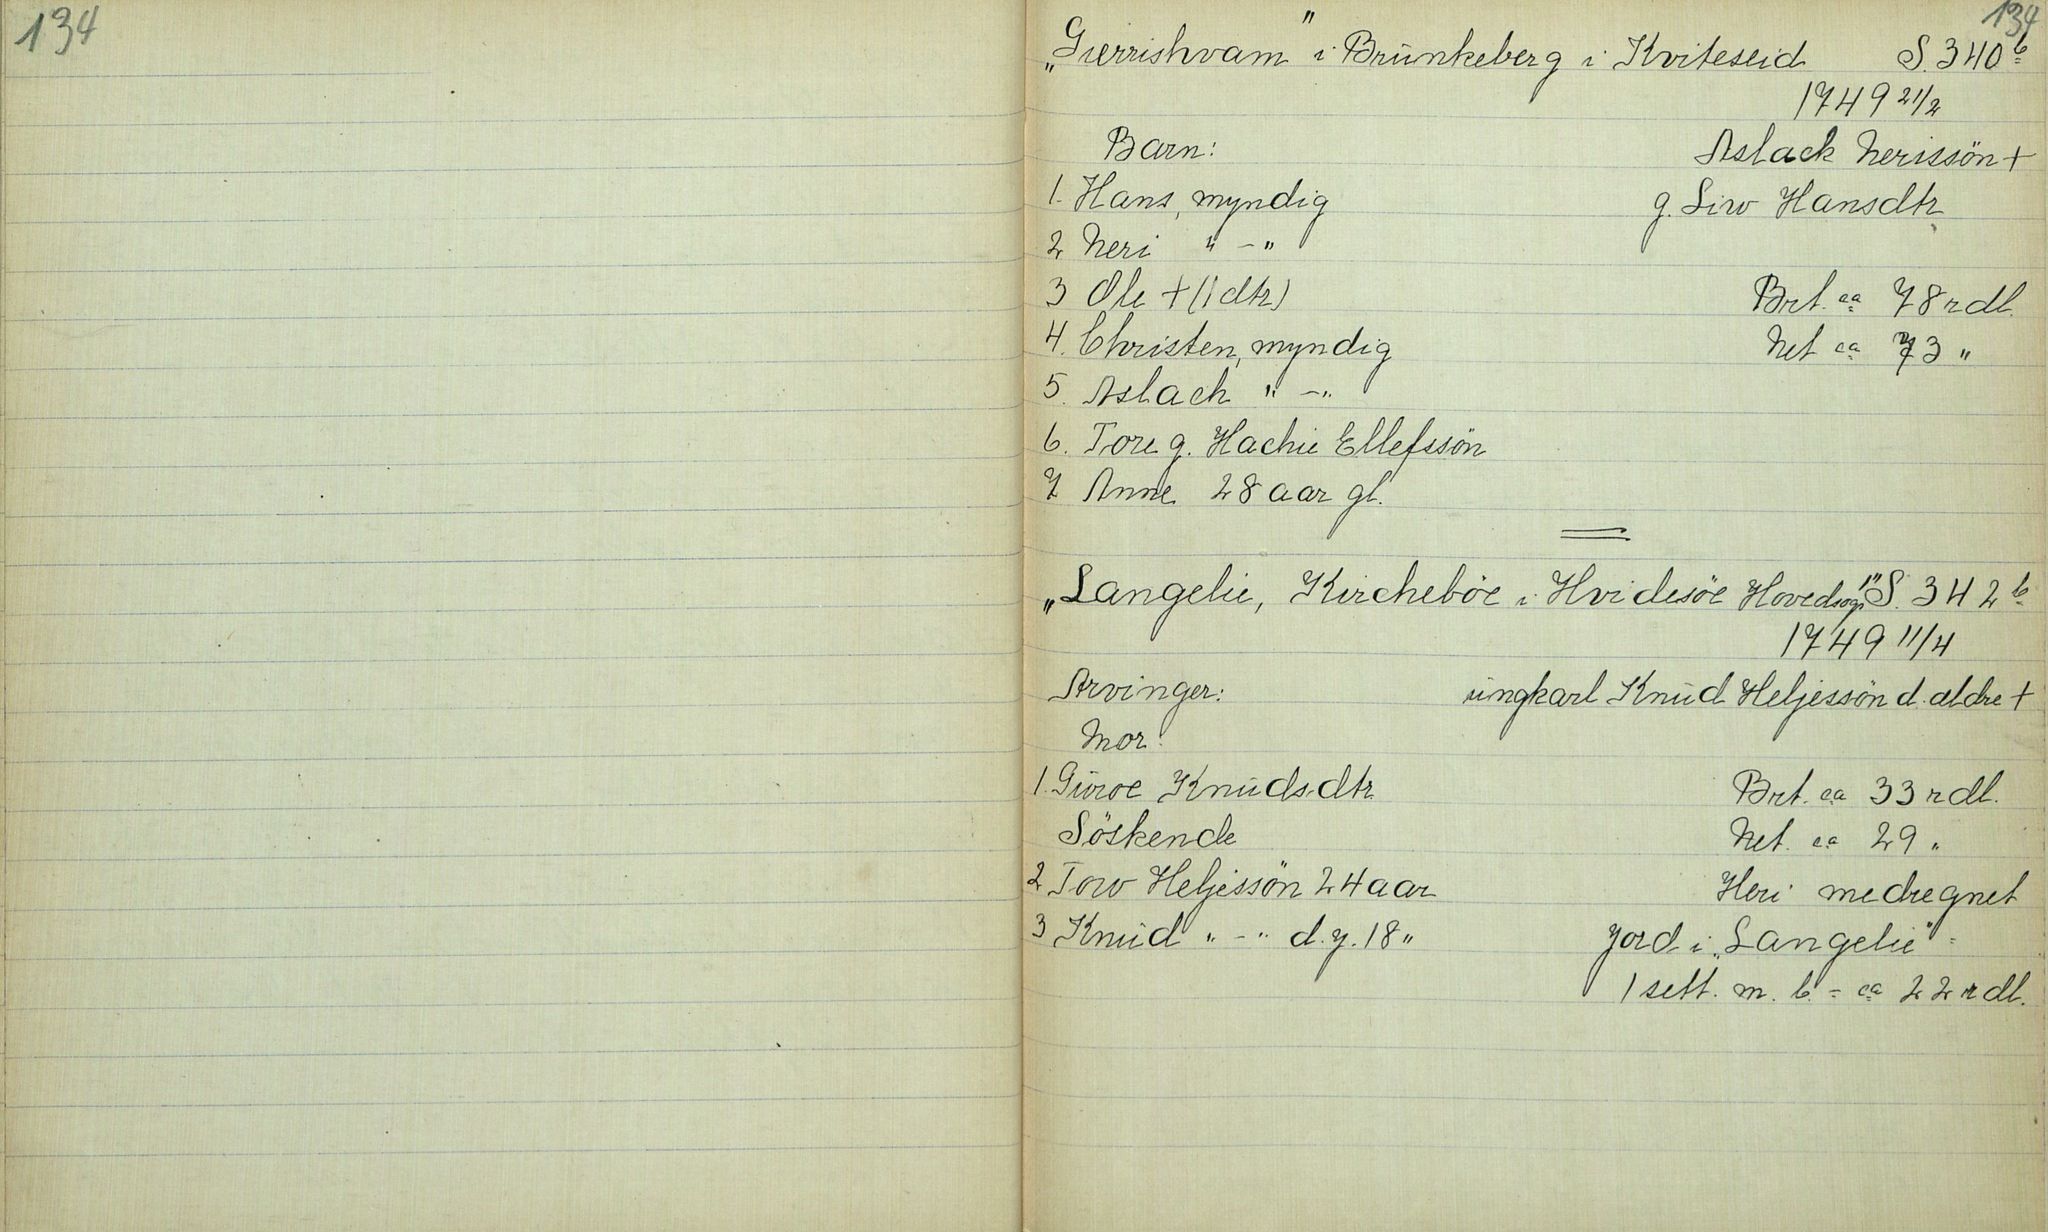 134
134
„Gierrishvam" i Brunkeberg i Kviteseid S. 340 b
1749 21/2
Barn: Aslack Nerissön +
1. Hans, myndig g. Siw Hansdtr
2 Neri " - "
3 Ole + (1 dtr) Brt. ca 78 rdl.
4. Christen, myndig Net ca 73 "
5. Aslach " - "
6. Tore g. Hachie Ellefssön
7 Anne 28 aar gl.
„Langelie, Kircheböe i Hvidesöe Hovedsogn" S. 342 b
1749 11/4
Arvinger: ungkarl Knud Heljessön d. ældre +
Mor:
1. Guroe Knudsdtr Brt. ca 33 rdl.
Söskende Net. ca 29 "
2 Tow Heljessön 24 aar Heri medregnet
3 Knud " - " d.y. 18 " Jord i „Langelie" =
1 sett. m. b. = ca 22 rdl.